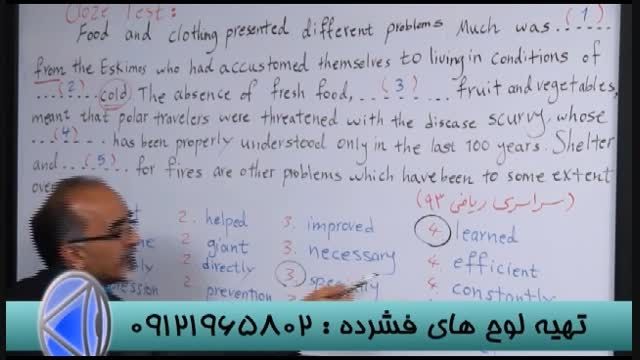 Cloze Test:
Food and clothing presented different problems Much was (1)
from the Eskimos who had accustomed themselves to living in conditions of
(2) cold The absence of fresh food, (3) fruit and vegetables,
meant that polar travelers were threatened with the disease scurvy, whose
(4) has been properly understood only in the last 100 years. Shelter
and (5) for fires are other problems which have been to some extent
(سراسری ریاضی ۹۳)
2. helped 3. improved 4. learned
2. giant 3. necessary 4. efficient
2. directly 3. specially 4. constantly
2. prevention
تهیه لوح های فشرده : ۰۹۱۲۱۹۶۵۸۰۲